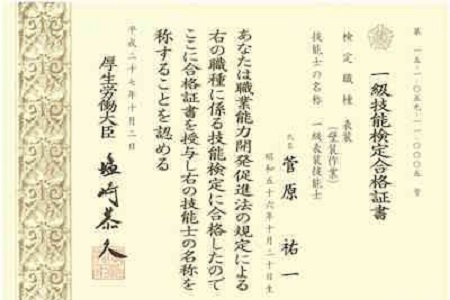 第一五-一-〇五九-一一-〇〇〇五号
一級技能検定合格証書
検定職種 表装
(壁装作業)
技能士の名称 一級表装技能士
氏名 菅原 祐一
昭和五十六年十月二十日生
あなたは職業能力開発促進法の規定による
右の職種に係る技能検定に合格したので
ここに合格証書を授与し右の技能士の名称を
称することを認める
平成二十七年十月二日
厚生労働大臣 塩崎恭久